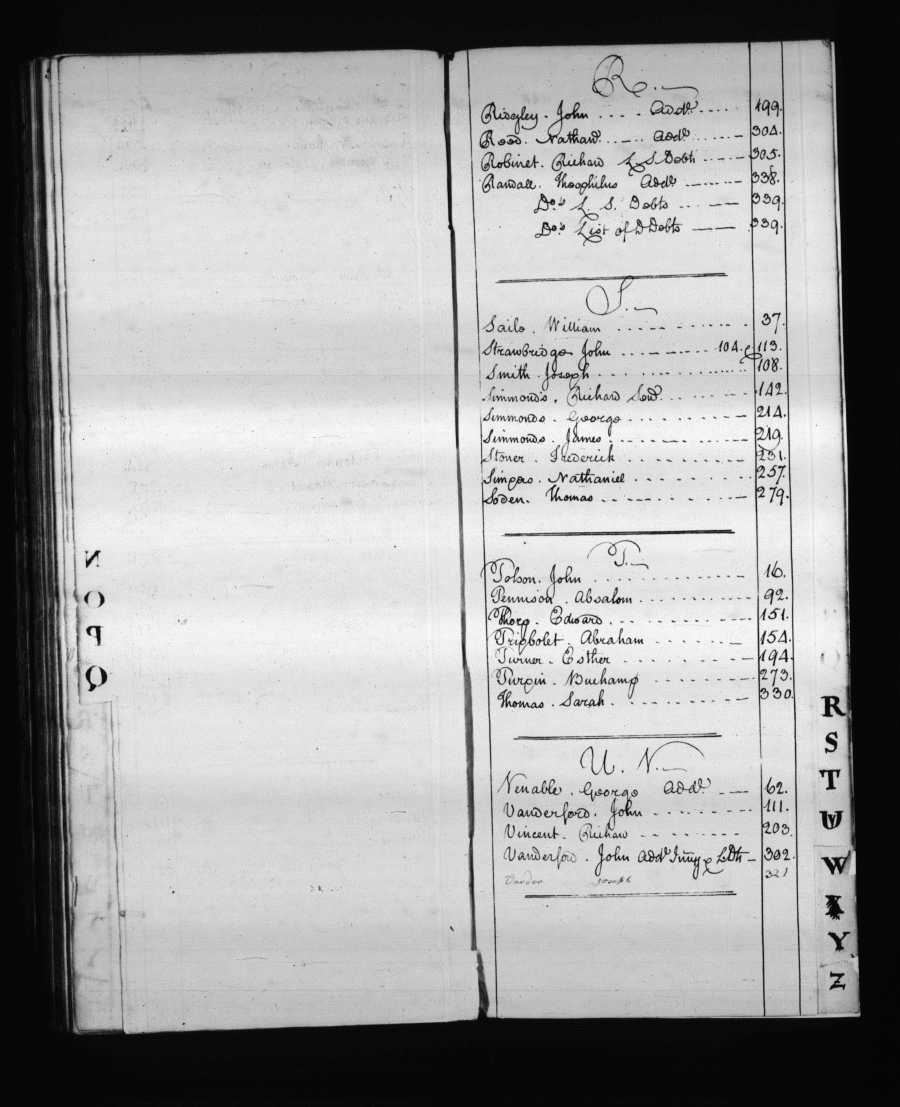 R.
Ridgley. John .... Addl. .... 199.
Reed. Nathan ..... Addl .... 304.
Robinet. Richard L S Debts ..... 305.
Randall. Theophilus Addl ....... 338.
Do's L. S. Debts ... 339.
Do's List of D Debts — 339.
S.
Sails. William ........ 37.
Strawbridge John ....... 104. & 113.
Smith Joseph ........ 108.
Simmonds. Richard Senr. ...... 142.
Simmonds. George ........ 214.
Simmonds. James ........ 219.
Stoner. Frederick ........ 231.
Simpers. Nathaniel ........ 257.
Soden. Thomas ........ 279.
T.
Tolson. John ........ 16.
Tennison. Absalom ........ 92.
Thorp. Edward ........ 151.
Tripbolet. Abraham ........ 154.
Turner. Esther ........ 194.
Turpin. Buchamp ........ 273.
Thomas. Sarah ........ 330.
U. V.
Venable. George Addl. — 62.
Vanderford. John ........ 111.
Vincent. Richard ........ 203.
Vanderford. John Addl Inny & LDts — 302.
Joseph 321
N
O
P
Q
R
S
T
U
W
X
Y
Z